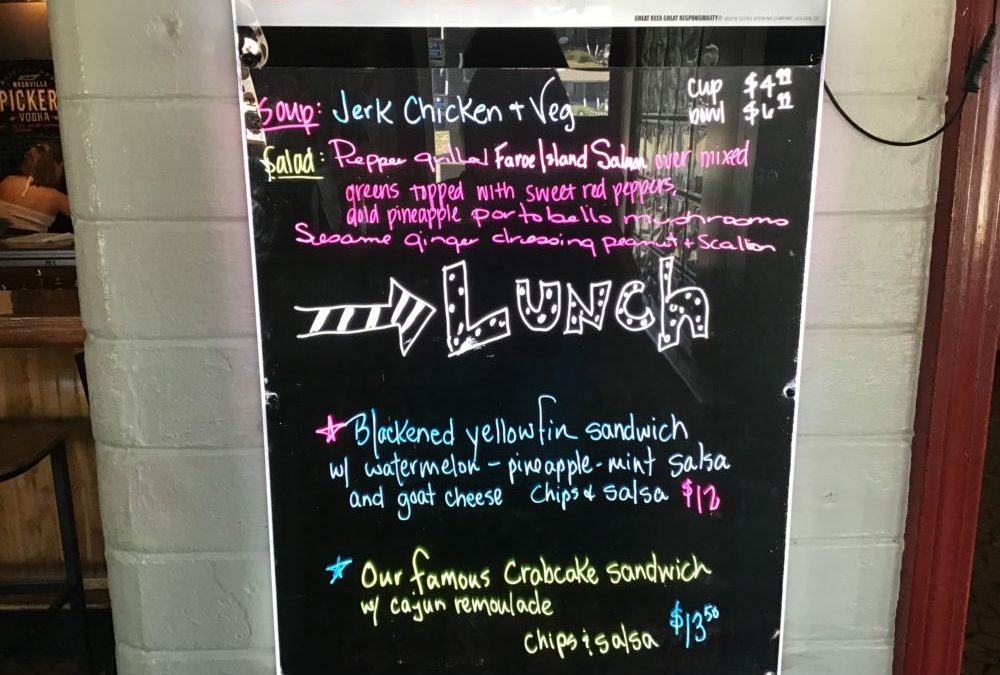 GREAT BEER GREAT RESPONSIBILITY®
NASHVILLE
PICKER
VODKA
Soup: Jerk Chicken + Veg
cup $4.99
bowl $6.99
Salad: Pepper grilled Faroe Island Salmon over mixed
greens topped with sweet red peppers,
gold pineapple portobello mushrooms
Sesame ginger dressing peanut + Scallion
Lunch
Blackened yellowfin sandwich
w/ watermelon - pineapple - mint salsa
and goat cheese chips & salsa $12
Our famous Crabcake sandwich
w/ cajun remoulade
chips & salsa $13.50